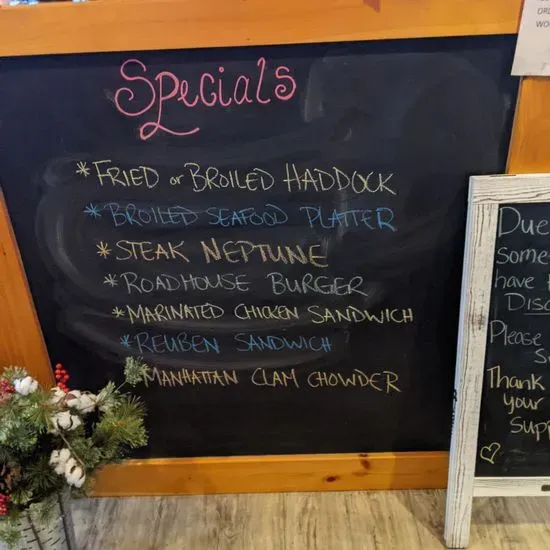 Specials
* FRIED or BROILED HADDOCK
* BROILED SEAFOOD PLATTER
* STEAK NEPTUNE
* ROADHOUSE BURGER
* MARINATED CHICKEN SANDWICH
* REUBEN SANDWICH
* MANHATTAN CLAM CHOWDER
Due
Some
have
Disc
Please
Thank
your
Supp